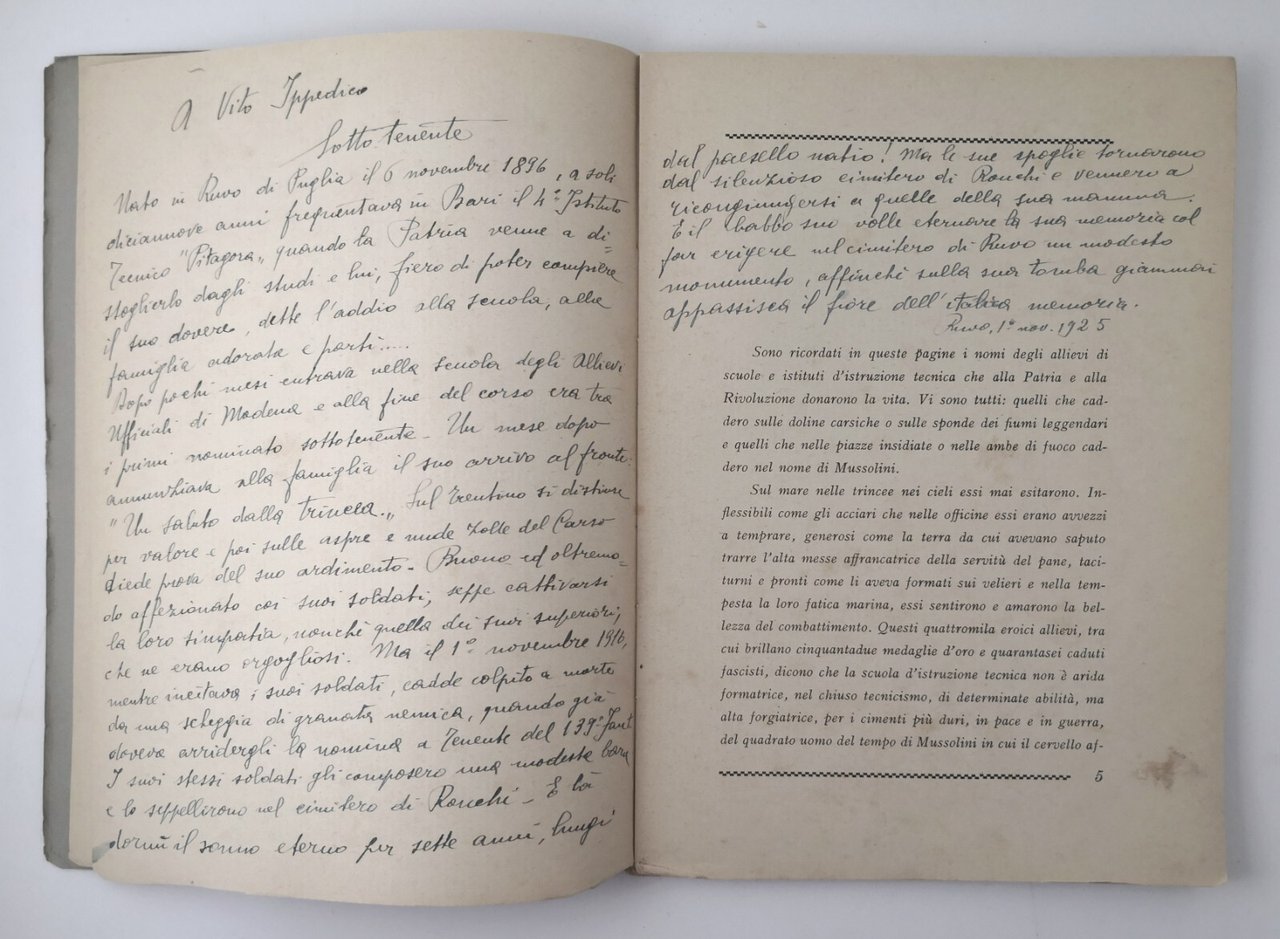 A Vito Ippedico
Sottotenente
Nato in Ruvo di Puglia il 6 novembre 1896, a soli
diciannove anni frequentava in Bari il 4° Istituto
Tecnico "Pitagora„ quando la Patria venne a di=
stoglierlo dagli studi e lui, fiero di poter compiere
il suo dovere, dette l'addio alla scuola, alla
famiglia adorata e partì.....
Dopo pochi mesi entrava nella scuola degli Allievi
Ufficiali di Modena e alla fine del corso era tra
i primi nominato sottotenente - Un mese dopo
annunziava alla famiglia il suo arrivo al fronte:
"Un saluto dalla trincea.„ Sul Trentino si distinse
per valore e poi sulle aspre e nude zolle del Carso
diede prova del suo ardimento - Buono ed oltremo=
do affezionato coi suoi soldati, seppe cattivarsi
la loro simpatia, nonchè quella dei suoi superiori,
che ne erano orgogliosi. Ma il 1° novembre 1916,
mentre incitava i suoi soldati, cadde colpito a morte
da una scheggia di granata nemica, quando già
doveva arridergli la nomina a Tenente del 139° Fant
I suoi stessi soldati gli composero una modesta bara
e lo seppellirono nel cimitero di Ronchi - E là
dormì il sonno eterno per sette anni, lungi
dal paesello natio! Ma le sue spoglie tornarono
dal silenzioso cimitero di Ronchi e vennero a
ricongiungersi a quelle della sua mamma.
E il babbo suo volle eternare la sua memoria col
far erigere nel cimitero di Ruvo un modesto
monumento, affinchè sulla sua tomba giammai
appassisca il fiore dell'italica memoria.
Ruvo, 1° nov. 1925
Sono ricordati in queste pagine i nomi degli allievi di
scuole e istituti d'istruzione tecnica che alla Patria e alla
Rivoluzione donarono la vita. Vi sono tutti: quelli che cad-
dero sulle doline carsiche o sulle sponde dei fiumi leggendari
e quelli che nelle piazze insidiate o nelle ambe di fuoco cad-
dero nel nome di Mussolini.
Sul mare nelle trincee nei cieli essi mai esitarono. In-
flessibili come gli acciari che nelle officine essi erano avvezzi
a temprare, generosi come la terra da cui avevano saputo
trarre l'alta messe affrancatrice della servitù del pane, taci-
turni e pronti come li aveva formati sui velieri e nella tem-
pesta la loro fatica marina, essi sentirono e amarono la bel-
lezza del combattimento. Questi quattromila eroici allievi, tra
cui brillano cinquantadue medaglie d'oro e quarantasei caduti
fascisti, dicono che la scuola d'istruzione tecnica non è arida
formatrice, nel chiuso tecnicismo, di determinate abilità, ma
alta forgiatrice, per i cimenti più duri, in pace e in guerra,
del quadrato uomo del tempo di Mussolini in cui il cervello af-
5